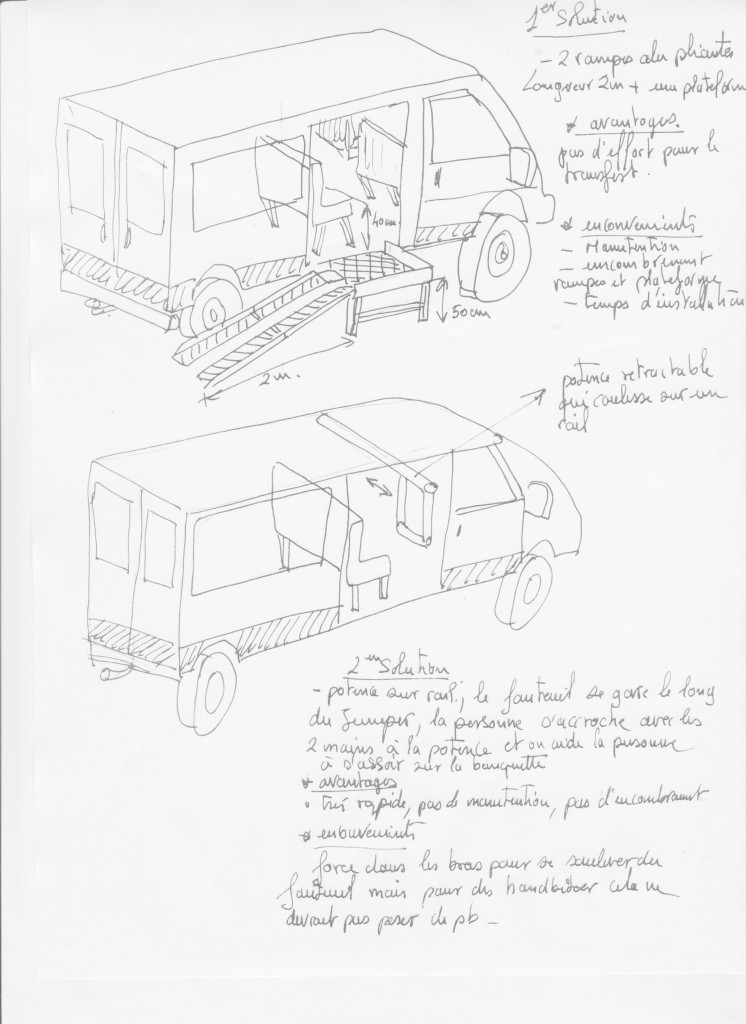 1er Solution
- 2 rampes alu pliantes
Longueur 2m + une plateform
* avantages.
pas d'effort pour le
transfert.
* enconvenients
- Manutention
- encombrement
rampes et plateforme
- temps d'installation
40cm
50cm
2m.
potence retractable
qui coulisse sur un
rail
2em Solution
- potence sur rail; le fauteuil se gare le long
du Jumper, la personne s'accroche avec les
2 mains à la potence et on aide la personne
à s'assoir sur la banquette
* avantages
• très rapide, pas de manutention, pas d'encombrement
* enconvenients
force dans les bras pour se soulever du
fauteuil mais pour des cela ne
devrait pas poser de pb -